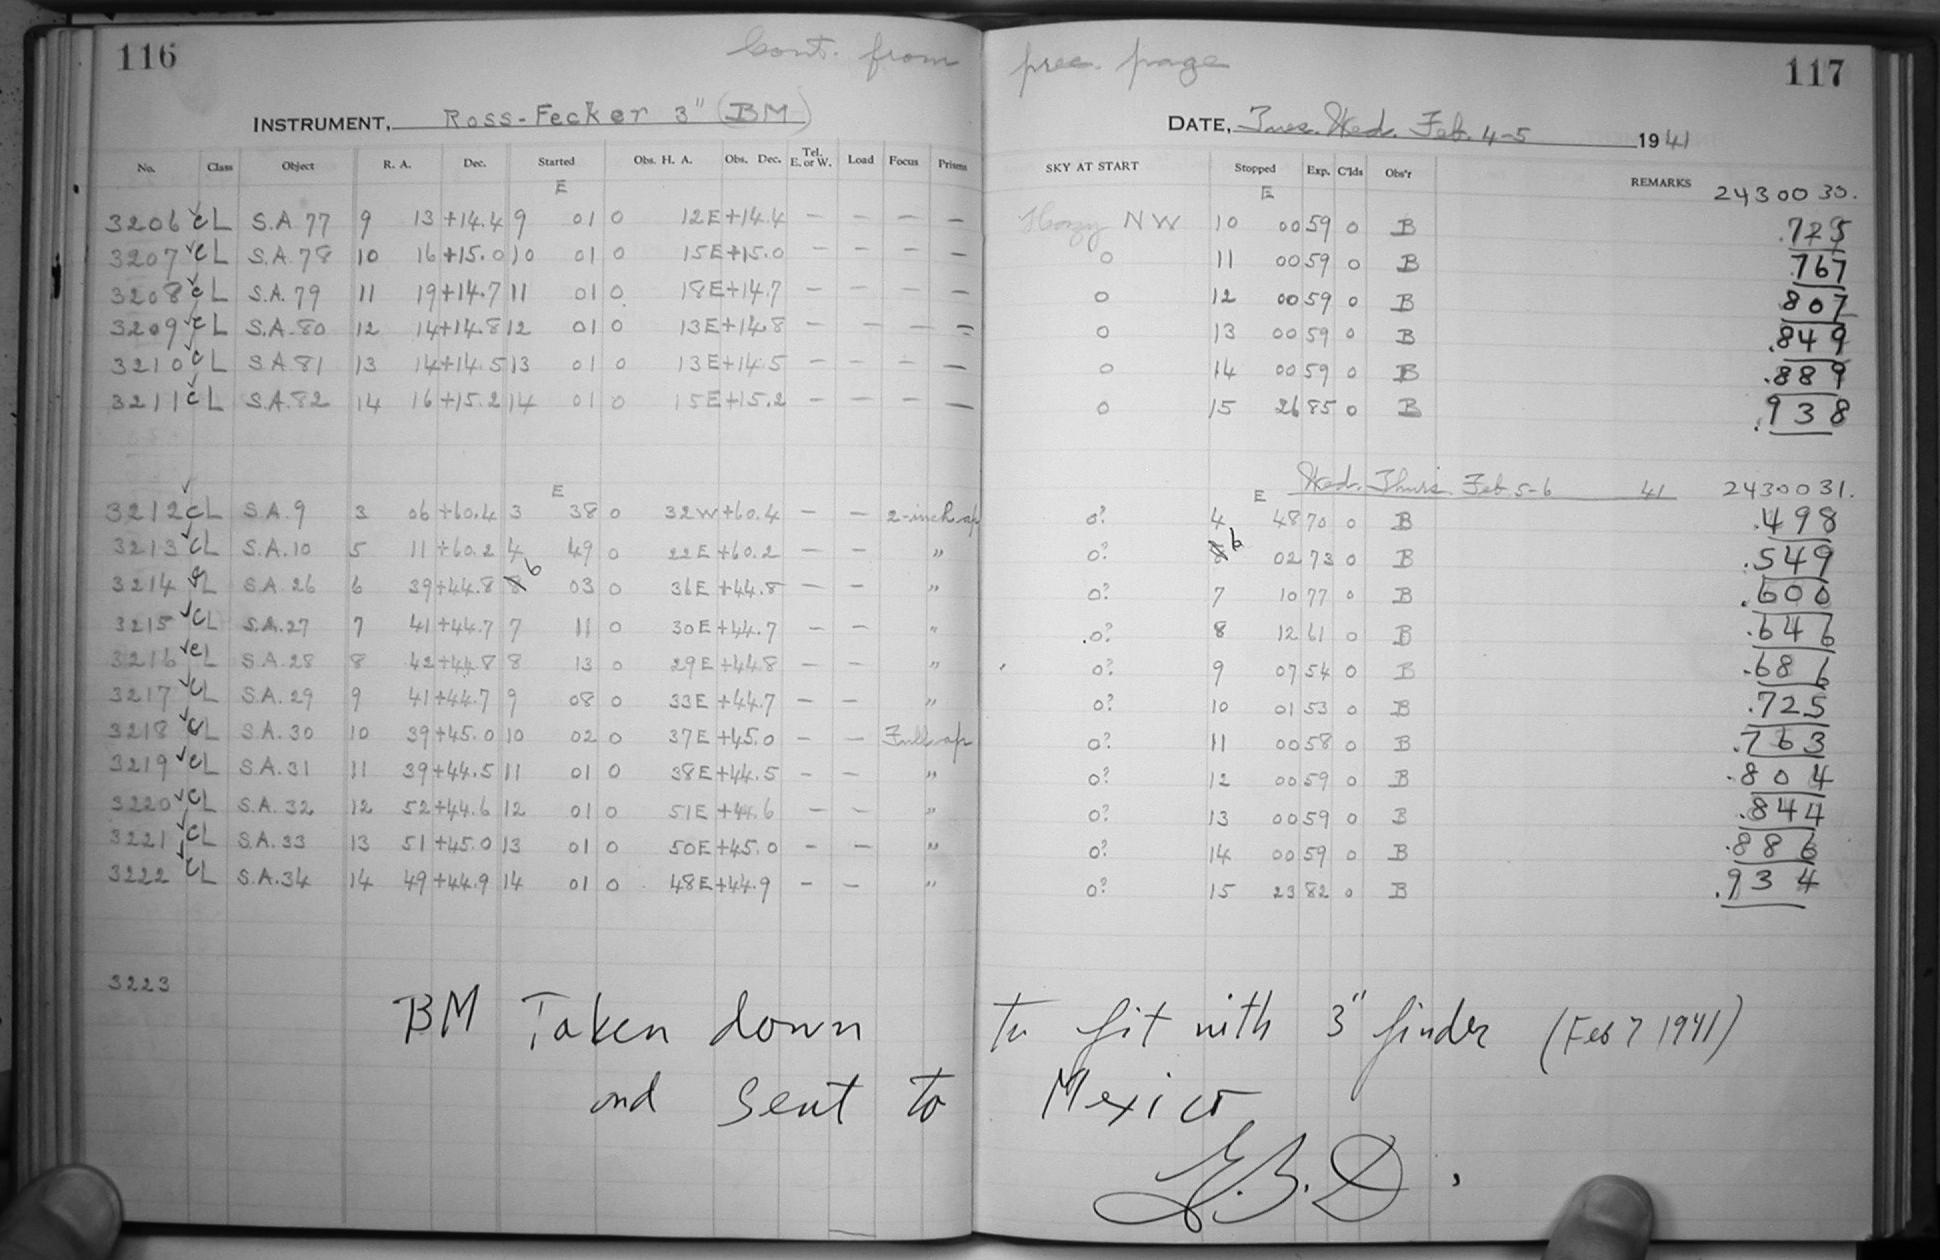 116 Cont. from prec. page 117
INSTRUMENT, Ross-Fecker 3" (BM) DATE, Tues. Wed. Feb. 4-5 1941
No. Class Object R. A. Dec. Started Obs. H. A. Obs. Dec. Tel. E. or W. Load Focus Prisms SKY AT START Stopped Exp. C'lds Obs'r REMARKS 2430030.
E E
3206 ✓ CL S.A. 77 9 13 +14.4 9 01 0 12E +14.4 — — — — Hazy NW 10 00 59 0 B .725
3207 ✓ CL S.A. 78 10 16 +15.0 10 01 0 15E +15.0 — — — — 0 11 00 59 0 B .767
3208 ✓ CL S.A. 79 11 19 +14.7 11 01 0 18E +14.7 — — — — 0 12 00 59 0 B .807
3209 ✓ CL S.A. 80 12 14 +14.8 12 01 0 13E +14.8 — — — — 0 13 00 59 0 B .849
3210 ✓ CL S.A. 81 13 14 +14.5 13 01 0 13E +14.5 — — — — 0 14 00 59 0 B .889
3211 ✓ CL S.A. 82 14 16 +15.2 14 01 0 15E +15.2 — — — — 0 15 26 85 0 B .938
E E Wed. Thurs. Feb. 5-6 41 2430031.
3212 ✓ CL S.A. 9 3 06 +60.4 3 38 0 32W +60.4 — — 2-inch ap 0? 4 48 70 0 B .498
3213 ✓ CL S.A. 10 5 11 +60.2 4 49 0 22E +60.2 — — " 0? 6 02 73 0 B .549
3214 ✓ CL S.A. 26 6 39 +44.8 6 03 0 36E +44.8 — — " 0? 7 10 77 0 B .600
3215 ✓ CL S.A. 27 7 41 +44.7 7 11 0 30E +44.7 — — " 0? 8 12 61 0 B .646
3216 ✓ CL S.A. 28 8 42 +44.8 8 13 0 29E +44.8 — — " 0? 9 07 54 0 B .686
3217 ✓ CL S.A. 29 9 41 +44.7 9 08 0 33E +44.7 — — " 0? 10 01 53 0 B .725
3218 ✓ CL S.A. 30 10 39 +45.0 10 02 0 37E +45.0 — — Full ap 0? 11 00 58 0 B .763
3219 ✓ CL S.A. 31 11 39 +44.5 11 01 0 38E +44.5 — — " 0? 12 00 59 0 B .804
3220 ✓ CL S.A. 32 12 52 +44.6 12 01 0 51E +44.6 — — " 0? 13 00 59 0 B .844
3221 ✓ CL S.A. 33 13 51 +45.0 13 01 0 50E +45.0 — — " 0? 14 00 59 0 B .886
3222 ✓ CL S.A. 34 14 49 +44.9 14 01 0 48E +44.9 — — " 0? 15 23 82 0 B .934
3223
BM Taken down to fit with 3" finder (Feb 7 1941)
and sent to Mexico